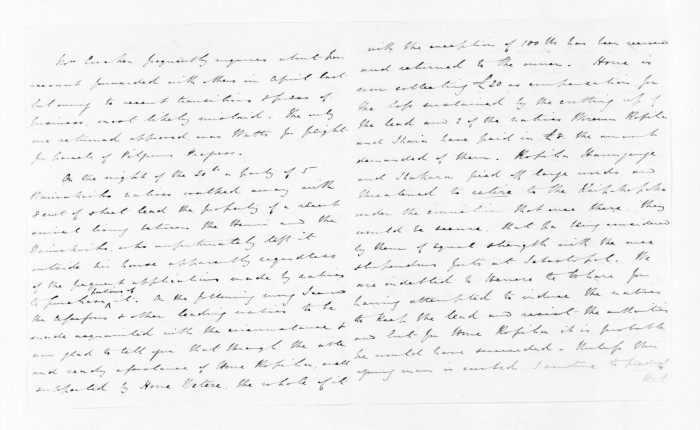 Mrs frequently enquires about her
account forwarded with others in April last
but owing to recent transitions & press of
business, most likely mislaid. The only
one returned approved was Watts for freight
for parcels of Pilgrims Progress.
On the night of the 20th a party of 5
natives walked away with
8 cwt of sheet lead the property of a recent
arrival living between the and the
who unfortunately left it
outside his house apparently regardless
of the frequent applications made by natives
to purchase portions of it. On the following morng I caused
the & other leading natives to be
made acquainted with the circumstance &
am glad to tell you that through the able
and ready assistance of Hone Ropiha, well
supported by Hone Wetere, the whole of it
with the exception of 100 lbs has been recovered
and returned to the owner. Hone is
now collecting £20 as compensation for
the loss sustained by the cutting up of
the lead and 2 of the natives Wiremu Ropiha
and Ihaia have paid in £8 the amount
demanded of them. Ropiha
and fired off large words and
threatened to retire to the
under the conviction that once there, they
would be secure, that pa being considered
by them of equal strength with the once
stupendous forts at Sebastopol. We
are indebted to for
having attempted to induce the natives
to keep the lead and resist the authorities
and but for Hone Ropiha it is probable
he would have succeeded. Unless this
young man is curbed I venture to predict
that